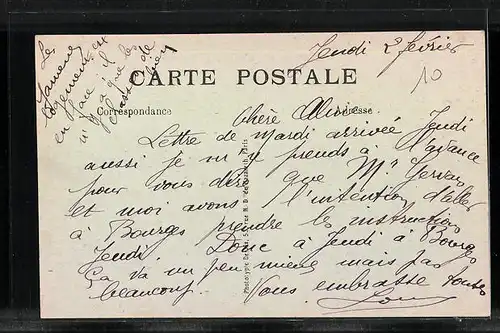 Jeudi 2 février
10
CARTE POSTALE
Correspondance
Adresse
chère
Lettre de Mardi arrivée Jeudi
aussi je m'y prends à l'avance
pour vous dire que Mr
et moi avons l'intention d'aller
à Bourges prendre les instructions
Jeudi. Donc à Jeudi à Bourges
Ça va un peu mieux mais pas
beaucoup. Vous embrasse toutes
Le
logement est
en face il
n'y a que les
de